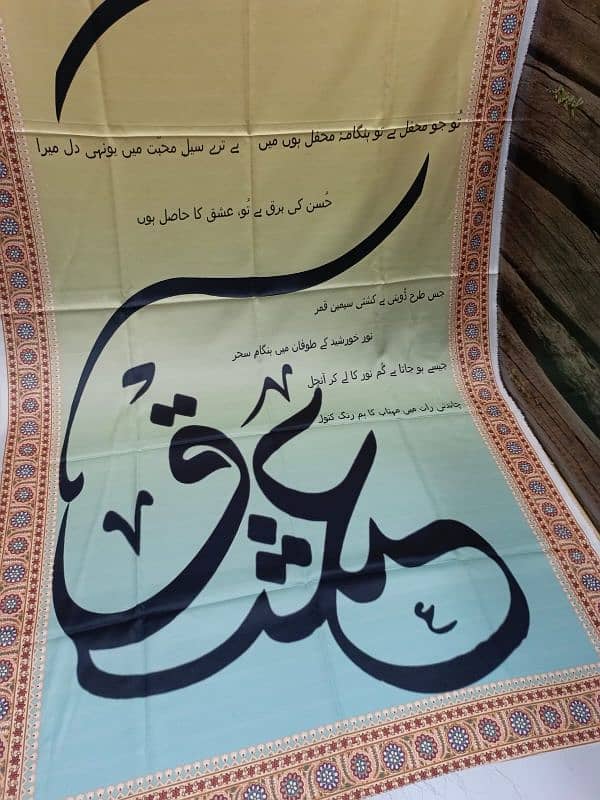 تُو جو محفل ہے تو ہنگامۂ محفل ہوں میں ہے ترے سیلِ محبّت میں یونہی دل میرا
حُسن کی برق ہے تُو، عشق کا حاصل ہوں
جس طرح ڈوبتی ہے کشتی سیمین قمر
نور خورشید کے طوفان میں ہنگامِ سحر
جیسے ہو جاتا ہے گُم نور کا لے کر آنچل
چاندنی رات میں مہتاب کا ہم رنگ کنول
عشق